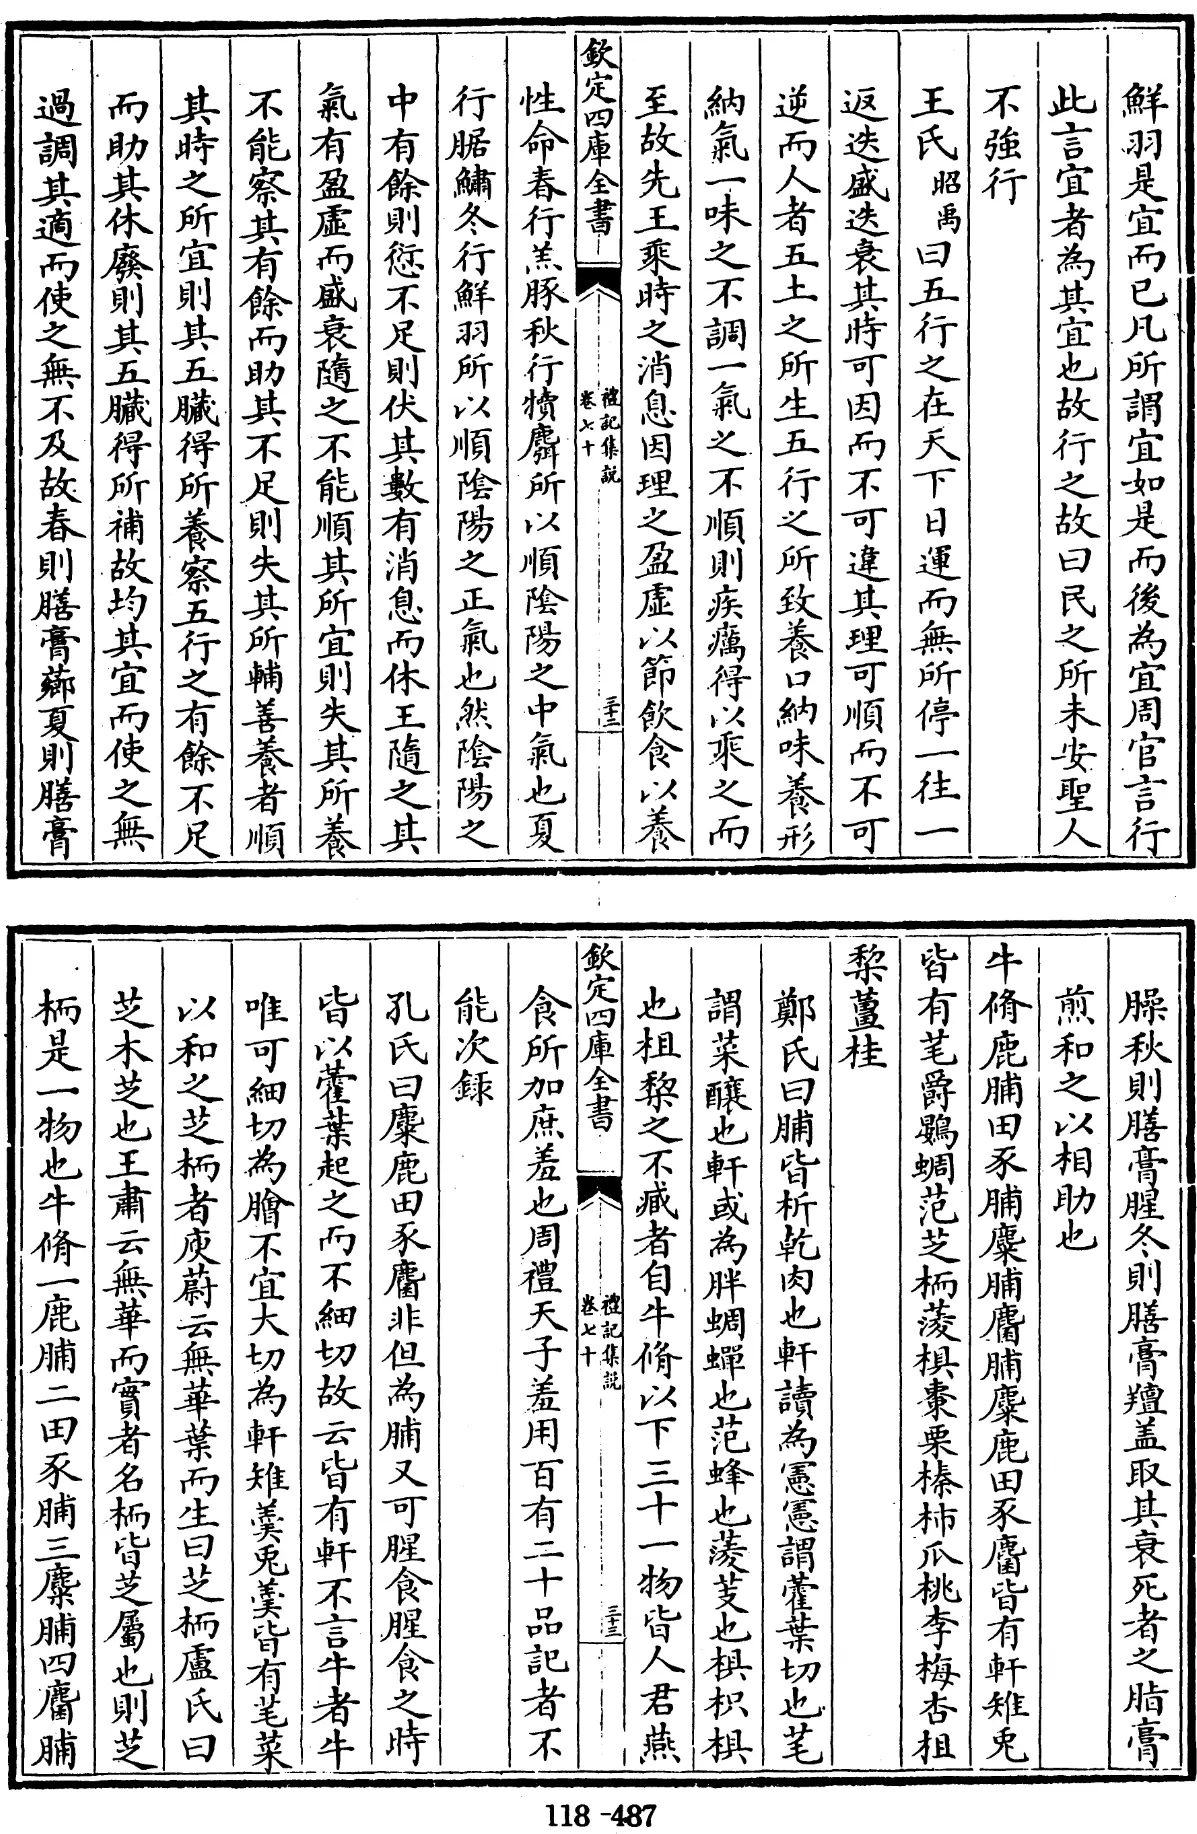 鮮羽是宜而已凡所謂宜如是而後為宜周官言行
此言宜者為其宜也故行之故曰民之所未安聖人
不強行
王氏昭禹曰五行之在天下日運而無所停一往一
返迭盛迭衰其時可因而不可違其理可順而不可
逆而人者五土之所生五行之所致養口納味養形
納氣一味之不調一氣之不順則疾癘得以乘之而
至故先王乘時之消息因理之盈虛以節飲食以養
欽定四庫全書
禮記集説
卷七十
三十三
性命春行羔豚秋行犢麛所以順陰陽之中氣也夏
行腒鱐冬行鮮羽所以順陰陽之正氣也然陰陽之
中有餘則愆不足則伏其數有消息而休王隨之其
氣有盈虛而盛衰隨之不能順其所宜則失其所養
不能察其有餘而助其不足則失其所輔善養者順
其時之所宜則其五臟得所養察五行之有餘不足
而助其休廢則其五臟得所補故均其宜而使之無
過調其適而使之無不及故春則膳膏薌夏則膳膏
臊秋則膳膏腥冬則膳膏羶盖取其衰死者之脂膏
煎和之以相助也
牛脩鹿脯田豕脯麋脯麕脯麋鹿田豕麕皆有軒雉兎
皆有芼爵鷃蜩范芝栭蔆椇棗栗榛柿瓜桃李梅杏柤
棃薑桂
鄭氏曰脯皆析乾肉也軒讀為憲憲謂藿葉切也芼
謂菜釀也軒或為胖蜩蟬也范蜂也蔆芰也椇枳椇
也柤棃之不臧者自牛脩以下三十一物皆人君燕
欽定四庫全書
禮記集説
卷七十
三十三
食所加庶羞也周禮天子羞用百有二十品記者不
能次録
孔氏曰麋鹿田豕麕非但為脯又可腥食腥食之時
皆以藿葉起之而不細切故云皆有軒不言牛者牛
唯可細切為膾不宜大切為軒雉羮兎羮皆有芼菜
以和之芝栭者庾蔚云無華葉而生曰芝栭盧氏曰
芝木芝也王肅云無華而實者名栭皆芝屬也則芝
栭是一物也牛脩一鹿脯二田豕脯三麋脯四麕脯
118-487